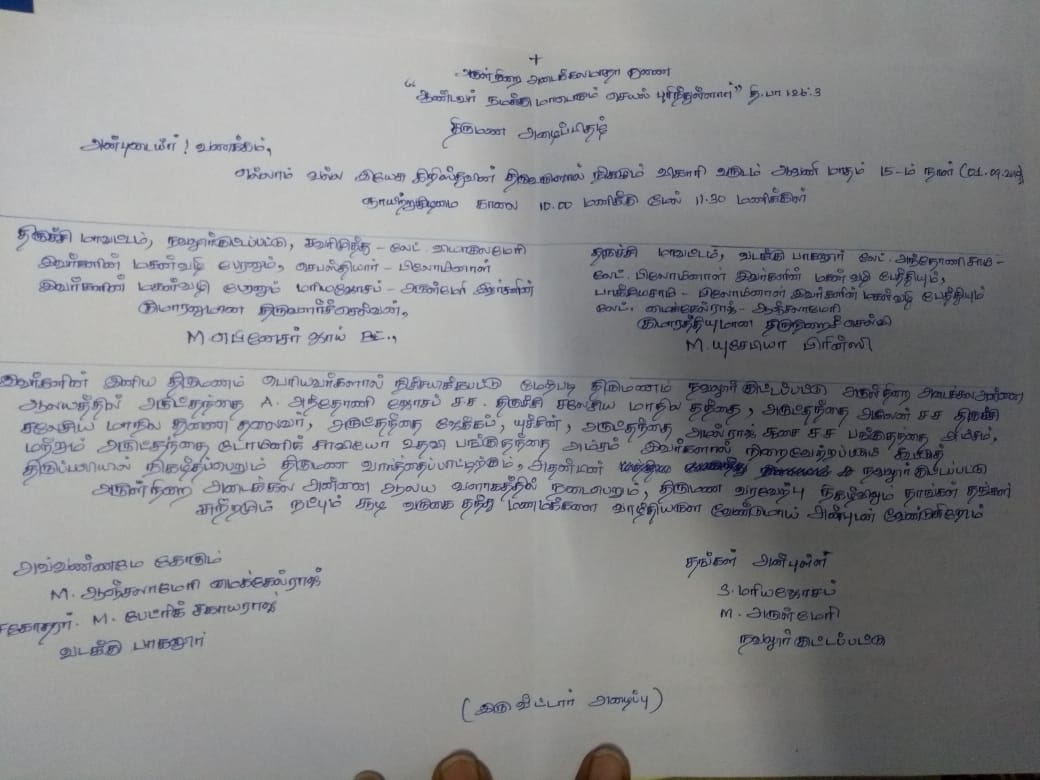 +
அருள்நிறை அடைக்கலமாதா துணை
"ஆண்டவர் நமக்கு மாபெரும் செயல் புரிந்துள்ளார்" தி.பா 126:3
திருமண அழைப்பிதழ்
அன்புடையீர்! வணக்கம்,
எல்லாம் வல்ல இயேசு கிறிஸ்துவின் திருவருளால் நிகழும் விகாரி வருடம் ஆவணி மாதம் 15-ம் நாள் (01.09.2019)
ஞாயிற்றுகிழமை காலை 10.00 மணிக்கு மேல் 11.30 மணிக்குள்
திருச்சி மாவட்டம், நவலூர்குட்டப்பட்டு, சவரிமுத்து - லேட். வியாகுலமேரி
இவர்களின் மகன்வழி பேரனும், செபஸ்தியார் - பிலோமினாள்
இவர்களின் மகள்வழி பேரனும் மரியஜோசப் - அருள்மேரி இவர்களின்
குமாரனுமான திருவளர்ச்செல்வன்,
M அபினேசர் ஜாய் B.E.,
திருச்சி மாவட்டம், வடக்கு பாகனூர் லேட். அந்தோணிசாமி -
லேட். பிலோமினாள் இவர்களின் மகன் வழி பேத்தியும்,
பாக்கியசாமி - பிலோமினாள் இவர்களின் மகள்வழி பேத்தியும்
லேட். மைக்கேல்ராஜ் - ஆஞ்சலாமேரி
குமாரத்தியுமான திருநிறைச்செல்வி
M. யுசேபியா பிரின்ஸி
இவர்களின் இனிய திருமணம் பெரியவர்களால் நிச்சயிக்கப்பட்டு மேற்படி திருமணம் நவலூர் குட்டப்பட்டு அருள்நிறை அடைக்கலஅன்னை
ஆலயத்தில் அருட்தந்தை A. அந்தோணி ஜோசப் ச.ச. திருச்சி சலேசிய மாநில தந்தை, அருட்தந்தை அலேன் ச.ச திருச்சி
சலேசிய மாநில துணை தலைவர், அருட்தந்தை ஜேக்கப், யூசின், அருட்தந்தை அமல்ராஜ் துசை ச.ச பங்குதந்தை அ.சம்,
மற்றும் அருட்தந்தை டோமினிக் சாவியோ உதவி பங்குதந்தை அ.சம் இவர்களால் நிறைவேற்றப்படும் கூட்டுத்
திருப்பலியில் நிகழ்த்தப்பெறும் திருமண வார்த்தைப்பாட்டிற்கும், அதன்பின் நவலூர் குட்டப்பட்டு
அருள்நிறை அடைக்கல அன்னை ஆலய வளாகத்தில் நடைபெறும், திருமண வரவேற்பு நிகழ்விலும் தாங்கள் தங்கள்
சுற்றமும் நட்பும் சூழ வருகை தந்து மணமக்களை வாழ்த்தியருள வேண்டுமாய் அன்புடன் வேண்டுகிறோம்
அவ்வண்ணமே கோரும்
M. ஆஞ்சலாமேரி மைக்கேல்ராஜ்
சகோதரர். M. பேட்ரிக் சகாயராஜ்
வடக்கு பாகனூர்
தங்கள் அன்புள்ள
S. மரியஜோசப்
M. அருள்மேரி
நவலூர் குட்டப்பட்டு
(இரு வீட்டார் அழைப்பு)